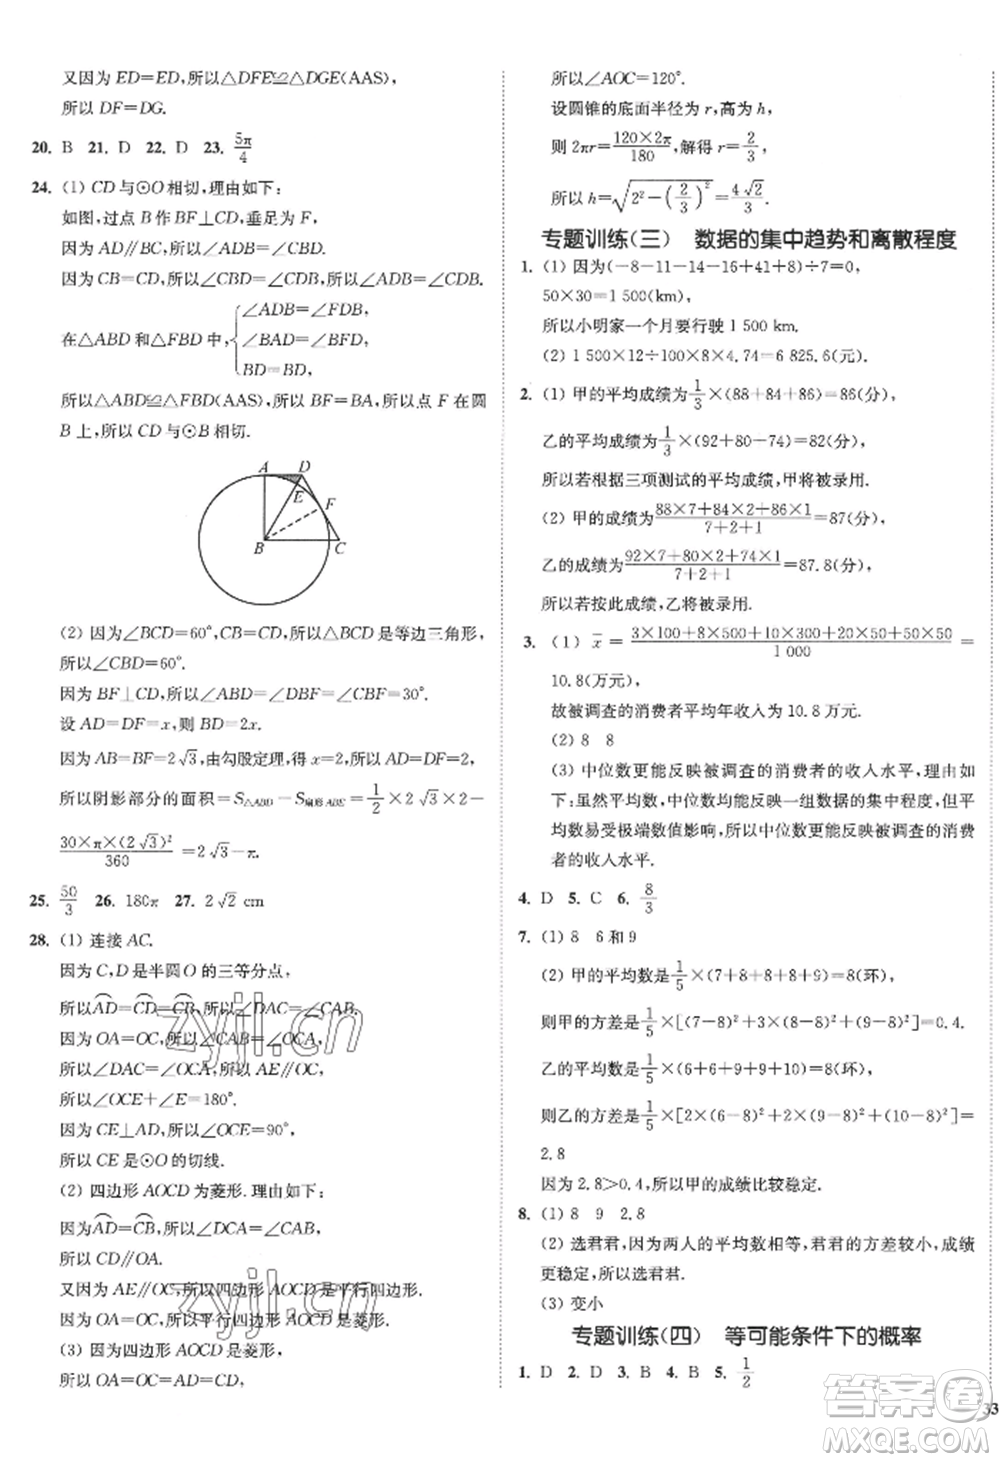 又因为 ED=ED,所以△DFE≌△DGE(AAS),
所以 DF=DG.
20. B 21. D 22. D 23. 5π/4
24. (1) CD 与⊙O 相切,理由如下:
如图,过点 B 作 BF⊥CD,垂足为 F,
因为 AD∥BC,所以∠ADB=∠CBD.
因为 CB=CD,所以∠CBD=∠CDB,所以∠ADB=∠CDB.
在△ABD 和△FBD 中,{∠ADB=∠FDB,
∠BAD=∠BFD,
BD=BD,
所以△ABD≌△FBD(AAS),所以 BF=BA,所以点 F 在圆
B 上,所以 CD 与⊙B 相切.
A D
E F
B C
(2) 因为∠BCD=60°,CB=CD,所以△BCD 是等边三角形,
所以∠CBD=60°.
因为 BF⊥CD,所以∠ABD=∠DBF=∠CBF=30°.
设 AD=DF=x,则 BD=2x.
因为 AB=BF=2√3,由勾股定理,得 x=2,所以 AD=DF=2,
所以阴影部分的面积=S△ABD−S扇形ABE=1/2×2√3×2−
30×π×(2√3)²/360=2√3−π.
25. 50/3 26. 180π 27. 2√2 cm
28. (1) 连接 AC.
因为 C,D 是半圆 O 的三等分点,
所以⌒AD=⌒CD=⌒CB,所以∠DAC=∠CAB.
因为 OA=OC,所以∠CAB=∠OCA,
所以∠DAC=∠OCA,所以 AE∥OC,
所以∠OCE+∠E=180°.
因为 CE⊥AD,所以∠OCE=90°,
所以 CE 是⊙O 的切线.
(2) 四边形 AOCD 为菱形.理由如下:
因为⌒AD=⌒CB,所以∠DCA=∠CAB,
所以 CD∥OA.
又因为 AE∥OC,所以四边形 AOCD 是平行四边形.
因为 OA=OC,所以平行四边形 AOCD 是菱形.
(3) 因为四边形 AOCD 是菱形,
所以 OA=OC=AD=DC,
所以∠AOC=120°.
设圆锥的底面半径为 r,高为 h,
则 2πr=120×2π/180,解得 r=2/3,
所以 h=√(2²−(2/3)²)=4√2/3.
专题训练(三) 数据的集中趋势和离散程度
1. (1) 因为(−8−11−14−16+41+8)÷7=0,
50×30=1 500(km),
所以小明家一个月要行驶 1 500 km.
(2) 1 500×12÷100×8×4.74=6 825.6(元).
2. (1) 甲的平均成绩为1/3×(88+84+86)=86(分),
乙的平均成绩为1/3×(92+80+74)=82(分),
所以若根据三项测试的平均成绩,甲将被录用.
(2) 甲的成绩为(88×7+84×2+86×1)/(7+2+1)=87(分),
乙的成绩为(92×7+80×2+74×1)/(7+2+1)=87.8(分),
所以若按此成绩,乙将被录用.
3. (1) x̄=(3×100+8×500+10×300+20×50+50×50)/1 000=
10.8(万元),
故被调查的消费者平均年收入为 10.8 万元.
(2) 8 8
(3) 中位数更能反映被调查的消费者的收入水平,理由如
下:虽然平均数,中位数均能反映一组数据的集中程度,但平
均数易受极端数值影响,所以中位数更能反映被调查的消费
者的收入水平.
4. D 5. C 6. 8/3
7. (1) 8 6 和 9
(2) 甲的平均数是1/5×(7+8+8+8+9)=8(环),
则甲的方差是1/5×[(7−8)²+3×(8−8)²+(9−8)²]=0.4.
乙的平均数是1/5×(6+6+9+9+10)=8(环),
则乙的方差是1/5×[2×(6−8)²+2×(9−8)²+(10−8)²]=
2.8
因为 2.8>0.4,所以甲的成绩比较稳定.
8. (1) 8 9 2.8
(2) 选君君,因为两人的平均数相等,君君的方差较小,成绩
更稳定,所以选君君.
(3) 变小
专题训练(四) 等可能条件下的概率
1. D 2. D 3. B 4. B 5. 1/2
33
zyjl.cn
zyjl.cn
答案圈
MXQE.COM